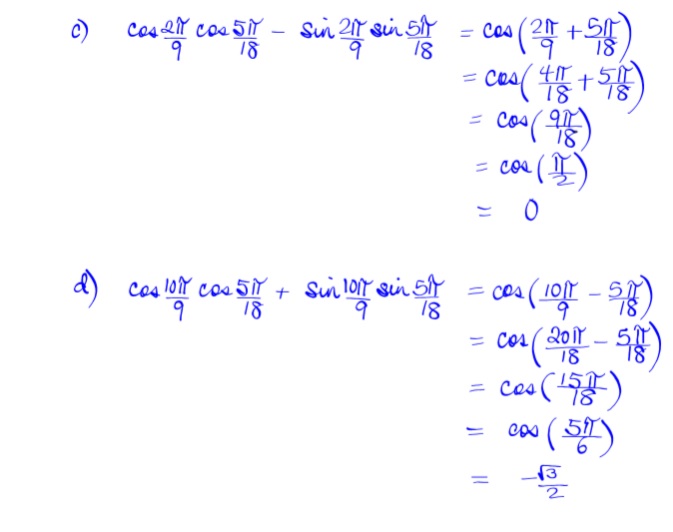 c) cos 2π/9 cos 5π/18 - sin 2π/9 sin 5π/18 = cos (2π/9 + 5π/18)
= cos (4π/18 + 5π/18)
= cos (9π/18)
= cos (π/2)
= 0
d) cos 10π/9 cos 5π/18 + sin 10π/9 sin 5π/18 = cos (10π/9 - 5π/18)
= cos (20π/18 - 5π/18)
= cos (15π/18)
= cos (5π/6)
= -√3/2